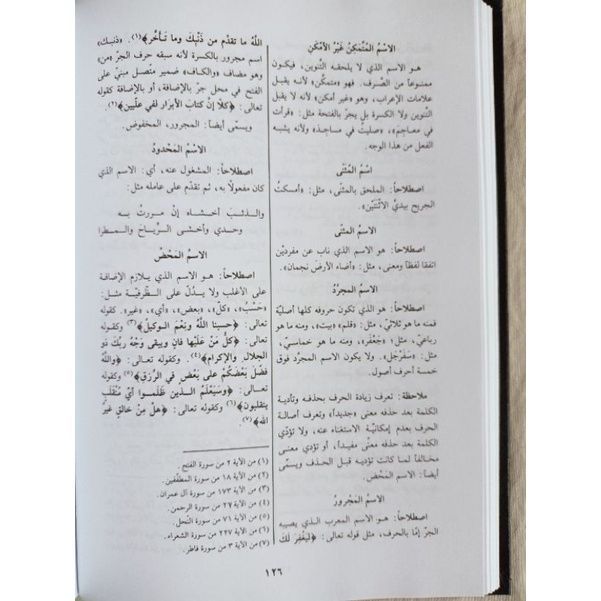 الاسْمُ المُتَمَكِنُ غَيْرُ الأمْكَنِ
هـو الاسـم الذي لا يـلحـقـه التَّنوين، فيكون
ممنوعاً من الصَّرف. فهو «متمكِّن» لأنه يقبل
علامات الإعراب، وهو «غير أمكن» لأنه لا يقبل
التَّنوين ولا الكسرة بل يجرّ بالفتحة مثل: «قرأت
في معاجِمَ»، «صليتُ في مساجدَ» لأنه يشبه
الفعل من هذا الوجه.
اسْمُ المُثَنّى
اصطلاحاً: الملحق بالمثنّى، مثل: «أمسكتُ
الجريحَ بيديَّ الاثْنَتَيْنِ».
الاسمُ المثنّى
اصطلاحاً: هو الاسم الذي ناب عن مفردَيْن
اتفقا لفظاً ومعنى، مثل: «أضاء الأرضَ نجمان».
الاسم المجرّدُ
اصطلاحاً: الاسم الذي تكون حروفه كلها أصليّة
فمنه ما هو ثلاثيّ، مثل: «قلم» «بيت»، ومنه ما هو
رباعيّ، مثل: «جَعْفَر»، ومنه ما هو خماسيّ،
مثل: «سَفَرْجَل». ولا يكون الاسم المجرّد فوق
خمسة أحرف أصول.
ملاحظة: تعرف زيادة الحرف بحذفه وتأدية
الكلمة بعد حذفه معنى «جديداً» وتعرف أصالة
الحرف بعدم إمكانيّة الاستغناء عنه، ولا تؤدّي
الكلمة بعد حذفه معنًى مفيداً، أو تؤدي معنى
مخالفاً لما كانت تؤديه قبل الحذف ويسمّى
أيضاً: الاسم المَحْض.
الاسمُ المَجْرورُ
اصطلاحاً: هـو الاسـم المعرب الـذي يصيبه
الجرّ إمّا بالحرف، مثل قوله تعالى: ﴿لِيَغْفِرَ لَكَ
اللَّهُ ما تقدَّم من ذَنْبِكَ وما تَأخَّر﴾(١). «ذنبك»
اسم مجرور بالكسرة لأنه سبقه حرف الجرّ «من»
وهو مضاف «والكاف» ضمير متّصل مبنيّ على
الفتح في محل جرّ بالإضافة، أو بالإضافة كقوله
تعالى: ﴿كلّا إنّ كتابَ الأبرَارِ لفي عِلِّيين﴾(٢).
ويسمّى أيضاً: المجرور، المخفوض.
الاسْمُ المَحْدودُ
اصطلاحاً: المشغول عنه، أي: الاسم الذي
كان مفعولاً به، ثم تقدّم على عامله مثل:
والـذئـبَ أخـشـاه إنْ مـررتُ بـه
وحدي وأخشى الرّياحَ والـمـطرا
الاسمُ المَحْضُ
اصطلاحاً: هـو الاسم الذي يلازم الإضافة
على الأغلب ولا يدُلّ على الظَّرفيّة مثـل:
«حَسْبُ»، «كلّ»، «بعض»، «أي»، «غير». كقوله
تعالى: ﴿حسبنا اللَّهُ ونِعْمَ الوكيلُ﴾(٣) وكقوله
تعالى: ﴿كلُّ مَنْ عَلَيْها فانٍ ويبقى وَجْهُ ربِّكَ ذو
الجلال والإكرام﴾(٤) وكقوله تعالى: ﴿واللَّهُ
فَضَّلَ بَعْضَكُمْ على بَعْضٍ في الرِّزْقِ﴾(٥) وكقوله
تعالى: ﴿وسَيَعْلَمُ الـذين ظَلَموا أيَّ مُنْقَلَبٍ
ينقلبون﴾(٦) وكقوله تعالى: ﴿هلْ مِنْ خالقٍ غيرُ
الله﴾(٧).
(١) من الآية ٢ من سورة الفتح.
(٢) من الآية ١٨ من سورة المطفّفين.
(٣) من الآية ١٧٣ من سورة آل عمران.
(٤) من الآية ٢٧ من سورة الرحمن.
(٥) من الآية ٧١ من سورة النّحل.
(٦) من الآية ٢٢٧ من سورة الشعراء.
(٧) من الآية ٣ من سورة فاطر.
١٢٦